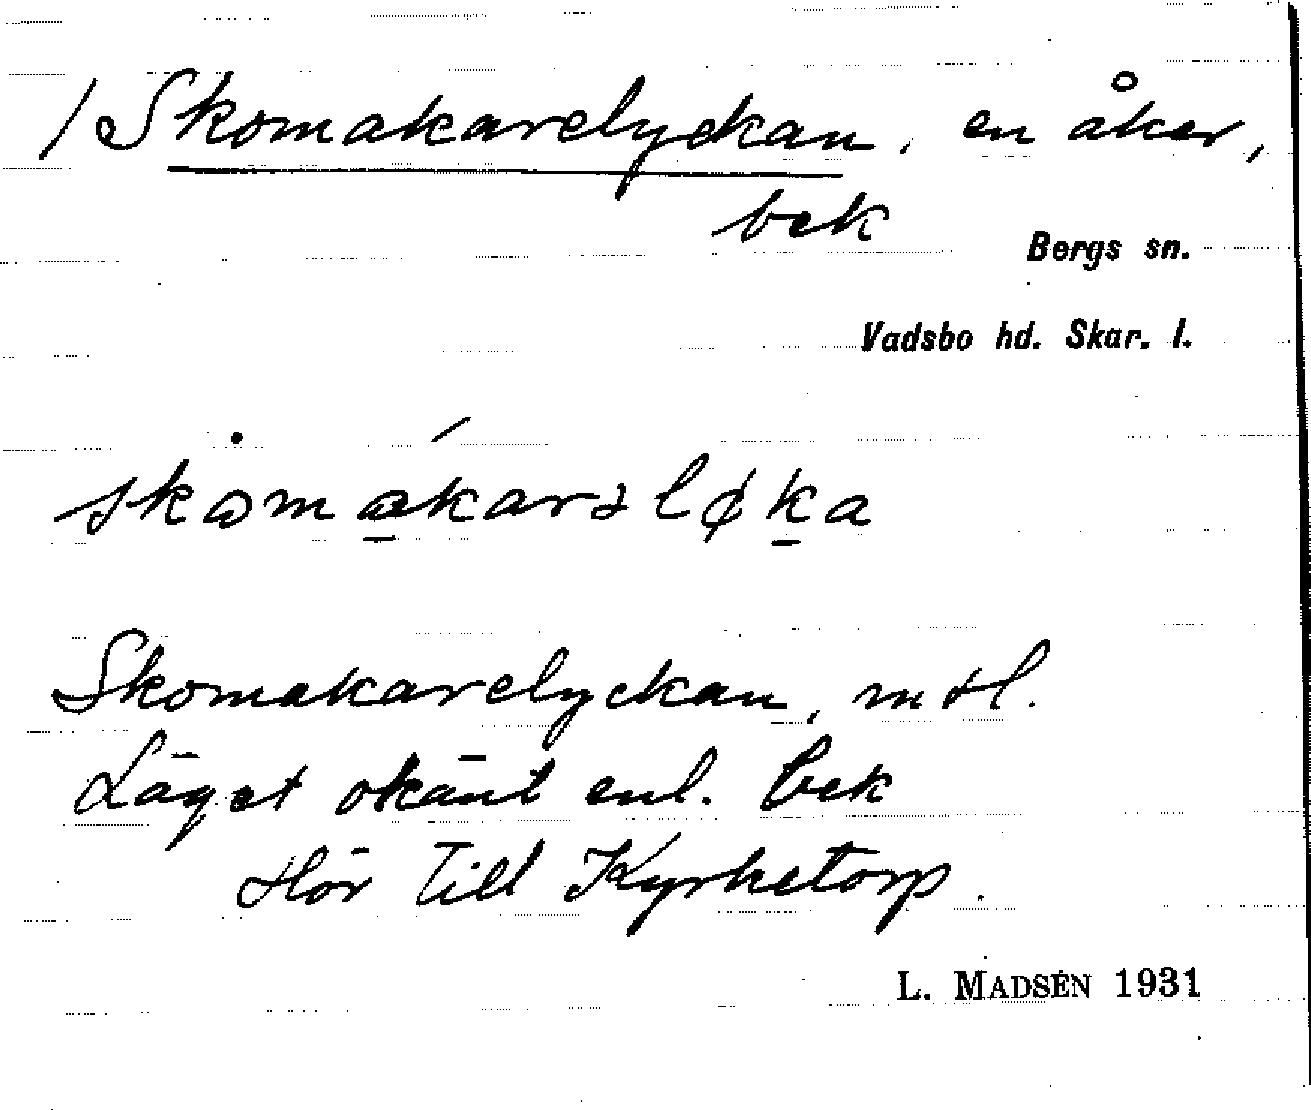 / Skomakarelyckan, en åker,
bek
Bergs sn.
Vadsbo hd. Skar. l.
Skomakarelyckan, mtl.
Läget okänt enl. bek
Hör till Kyrketorp.
L. MADSÉN 1931